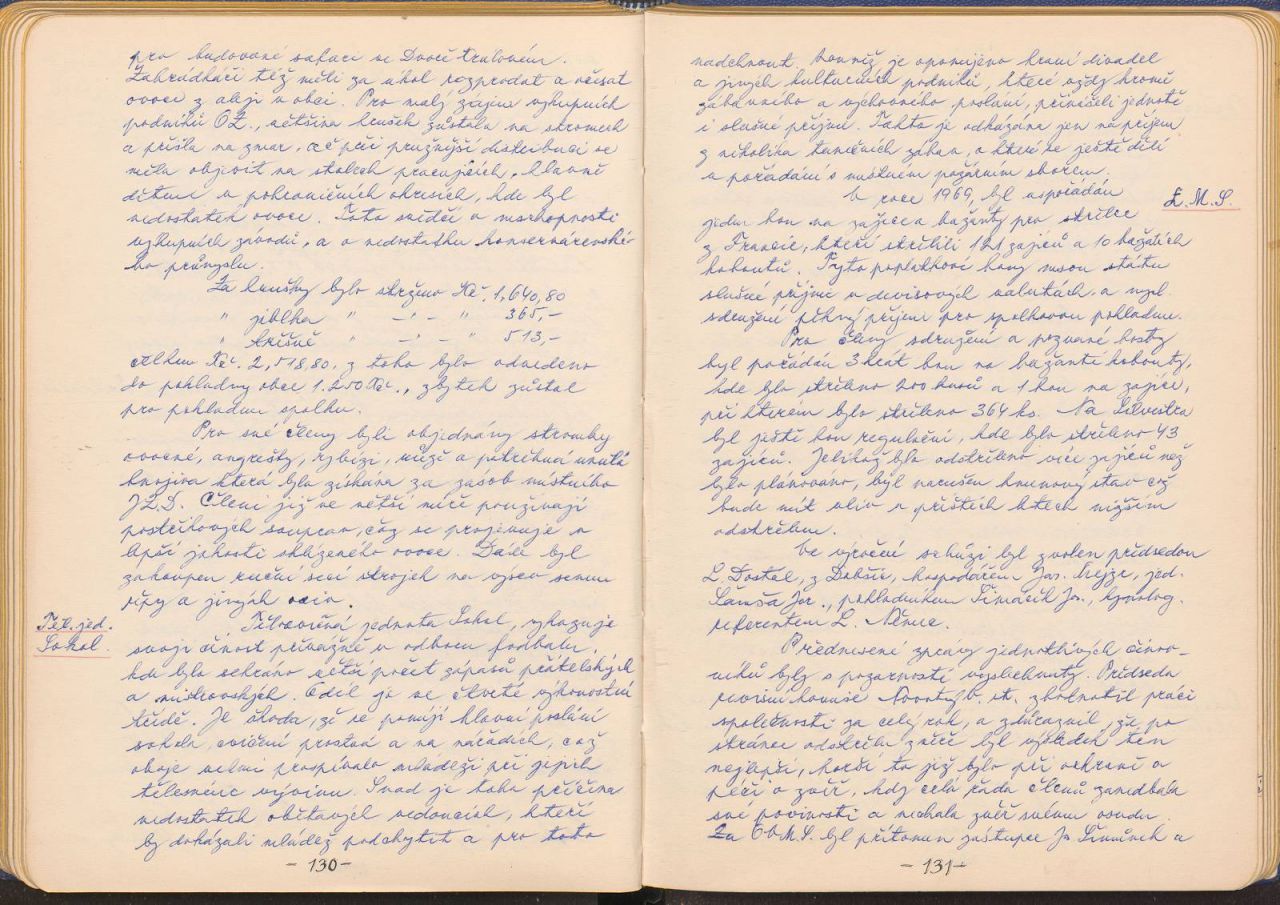 pro budované safari ve Dvoře Králové n.
Zahrádkáři též měli za úkol rozprodat a očesat
ovoce z alejí v obci. Pro malý zájem výkupních
podniků OZ., většina hrušek zůstala na stromech
a přišla na zmar, ač při pružnější distribuci se
měla objevit na stolech pracujících, hlavně
dětem v pohraničních okresích, kde byl
nedostatek ovoce. Toto svědčí o neschopnosti
výkupních závodů, a o nedostatku konservárenské-
ho průmyslu.
Za hrušky bylo strženo Kč. 1,640,80
" jablka " -"- " 365,-
" třešně " -"- " 513,-
celkem Kč. 2,518,80. z toho bylo odvedeno
do pokladny obce 1.250 Kč., zbytek zůstal
pro pokladnu spolku.
Pro své členy byli objednány stromky
ovocné, angrešty, rybízi, růže a potřebná umělá
hnojiva která byla získána ze zásob místního
JZD. Členi již ve větší míře používají
postřikových souprav, což se projevuje v
lepší jakosti sklizeného ovoce. Dále byl
zakoupen ruční secí strojek na výsev semen
řepy a jiných osiv.
Těl. jed.
Sokol.
Tělocvičná jednota Sokol, vykazuje
svoji činost převážně v odboru fodbalu,
kde bylo sehráno větší počet zápasů přátelských
a mistrovských. Oddíl je ve čtvrté výkonostní
třídě. Je škoda, že se pomíjí hlavní poslání
sokola, cvičení prostná a na nářadích, což
oboje velmi prospívalo mládeži při jejich
tělesném vývinu. Snad je toho příčina
nedostatek obětavých vedoucích, kteří
by dokázali mládež podchytit a pro toto
- 130 -
nadchnout. Rovněž je opomíjeno hraní divadel
a jiných kulturních podniků, které vždy kromě
zábavního a výchovného poslání, přinášeli jednotě
i slušné příjmy. Takto je odkázána jen na příjem
z několika tanečních zábav, o které se ještě dělí
v pořádání s místním požárním sborem.
L. M. S.
V roce 1969, byl uspořádán
jeden hon na zajíce a bažanty pro střelce
z Francie, kteří střelili 121 zajíců a 10 bažantích
kohoutů. Tyto poplatkové hony nesou státu
slušné příjmi v devisových valutách, a mysl.
sdružení pěkný příjem pro spolkovou pokladnu.
Pro členy sdružení a pozvané hosty
byl pořádán 3 krát hon na bažantí kohouty,
kde bylo střeleno 200 kusů a 1 hon na zajíce,
při kterém bylo střeleno 364 ks. Na Silvestra
byl ještě hon regulační, kde bylo střeleno 43
zajíců. Jelikož bylo odstřeleno více zajíců než
bylo plánováno, byl narušen kmenový stav což
bude mít vliv v příštích letech nižším
odstřelem.
Ve výroční schůzi byl zvolen předsedou
L. Dostal, z Dobšic, hospodářem Jos. Krejza, jed.
Šamša Jos., pokladníkem Šimáčik Jos., kynolog.
referentem L. Němec.
Přednesené zprávy jednotlivých činov-
níků byly s pozorností vyslechnuty. Předseda
revisní komise Novotný b. st. zhodnotil práci
společnosti za celý rok, a zdůraznil, že po
stránce odstřelu zvěře byl výsledek ten
nejlepší, horší to již bylo při ochraně a
péči o zvěř, kdy celá řada členů zanedbala
své povinosti a nechala zvěř svému osudu.
Za OVMS. byl přítomen zástupce Js Šimůnek a
- 131 -